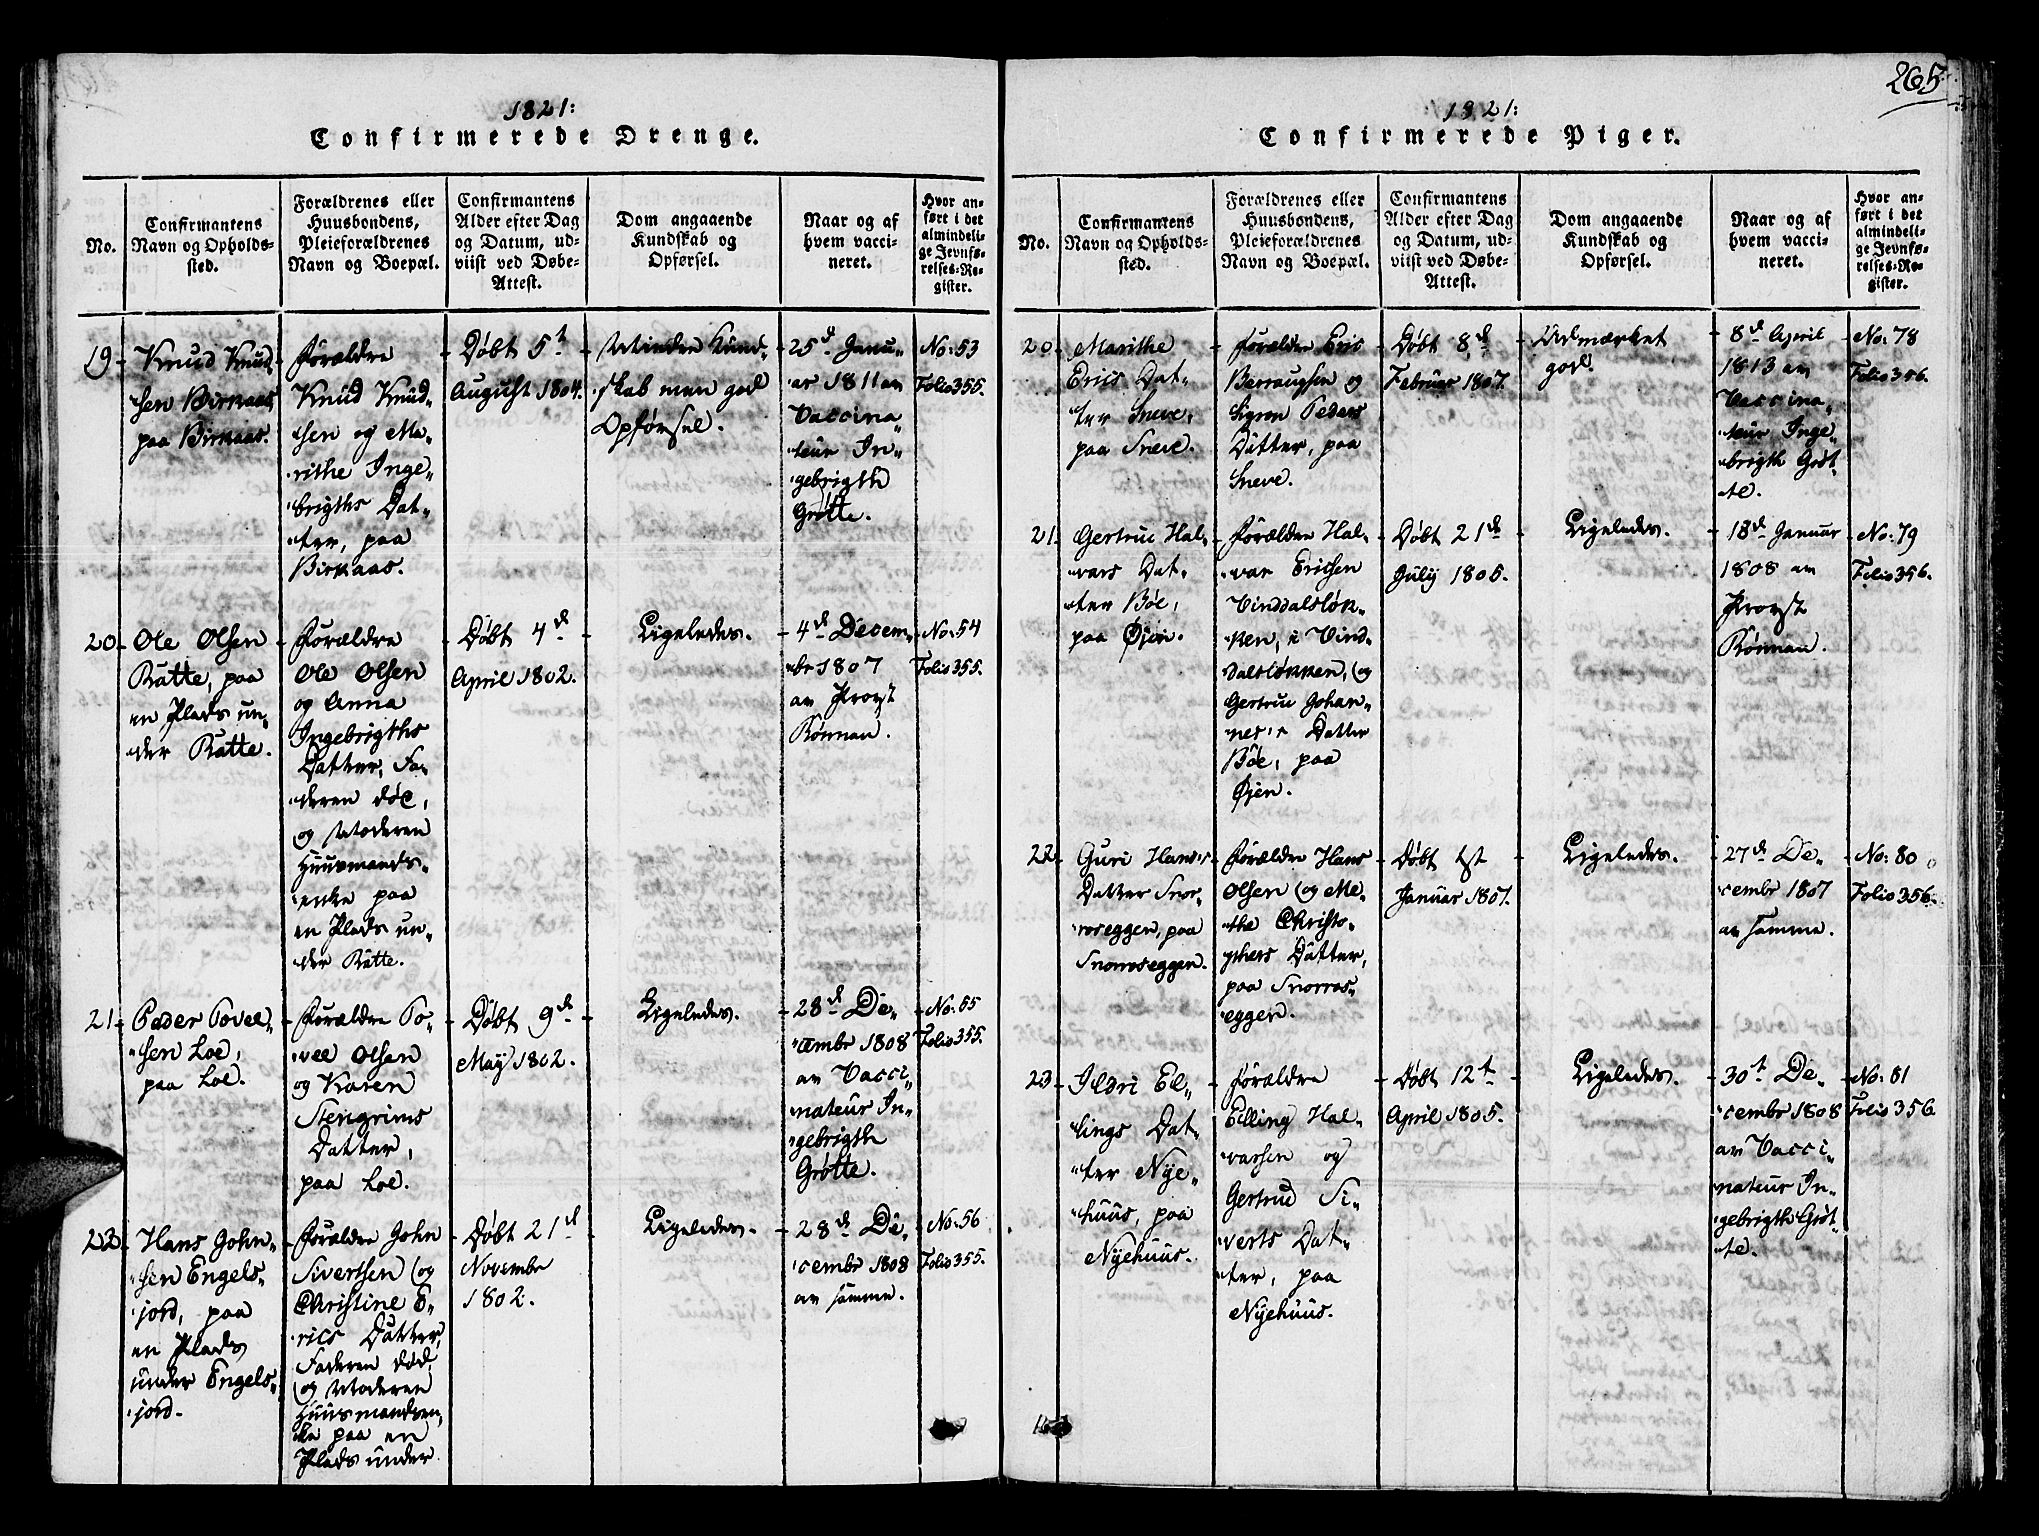 1821:
Confirmerede Drenge.
No.
Confirmantens
Navn og Opholds-
sted.
Forældrenes eller
Huusbondens,
Pleieforældrenes
Navn og Boepæl.
Confirmantens
Alder efter Dag
og Datum, ud-
viist ved Døbe-
Attest.
Dom angaaende
Kundskab og
Opførsel.
Naar og af
hvem vacci-
neret.
Hvor an-
ført i det
almindeli-
ge Jevnfø-
relses-Re-
gister.
19
Knud Knud-
sen Birkaas
paa Birkaas.
Forældre
Knud Knud-
sen og Ma-
rithe Inge-
brigths Dat-
ter, paa
Birkaas.
Døbt 5t
August 1804.
Mindre Kund-
skab men god
Opførsel.
25d Janu-
ar 1811 av
Vaccina-
teur In-
gebrigth
Grøtte.
No: 53
Folio 355.
20
Ole Olsen
Ratte, paa
en Plads un-
der Ratte.
Forældre
Ole Olsen
og Anna
Ingebrigths
Datter, Fa-
deren død,
og Moderen
Huusmands-
enke paa
en Plads un-
der Ratte.
Døbt 4d
April 1802.
Ligeledes.
4d Decem-
br 1807
av Provst
Rønnau.
No: 54
Folio 355.
21
Peder Povel-
sen Loe,
paa Loe.
Forældre Po-
vel Olsen
og Karen
Stengrims
Datter,
paa Loe.
Døbt 9d
May 1802.
Ligeledes.
28d De-
cembr 1808
av Vacci-
nateur In-
gebrigth
Grøtte.
No: 55
Folio 355.
22
Hans John-
sen Engels-
jord, paa
en Plads
under Engels-
jord.
Forældre John
Sivertsen og
Christine E-
rics Datter,
Faderen død,
og Moderen
Huusmandsen-
ke paa en
Plads under
Døbt 21d
Novembr
1802.
Ligeledes.
28d De-
cembr 1808
av samme.
No: 56
Folio 355.
265
1821:
Confirmerede Piger.
No.
Confirmantens
Navn og Opholds-
sted.
Forældrenes eller
Huusbondens,
Pleieforældrenes
Navn og Boepæl.
Confirmantens
Alder efter Dag
og Datum, ud-
viist ved Døbe-
Attest.
Dom angaaende
Kundskab og
Opførsel.
Naar og af
hvem vacci-
neret.
Hvor an-
ført i det
almindeli-
ge Jevnfø-
relses-Re-
gister.
20
Marithe
Erics Dat-
ter Sneve,
paa Sneve.
Forældre Eric
og
Sigron Peders
Datter, paa
Sneve.
Døbt 8d
Februar 1807.
Udmærket
god.
8d April
1813 av
Vaccina-
teur Inge-
brigth Grøt-
te.
No: 78
Folio 356.
21
Gertrue Hal-
vors Dat-
ter Böe,
paa Øjen.
Forældre Hal-
vor Ericsen
Vinddalsløk-
ken, i Vind-
dalsløkken, og
Gertrue Johan-
nes's Datter
Böe, paa
Øjen.
Døbt 21d
July 1805.
Ligeledes.
18d Januar
1808 av
Provst
Rønnau.
No: 79
Folio 356.
22
Guri Hans's
Datter Snor-
roseggen, paa
Snorroseggen.
Forældre Hans
Olsen og Me-
the Christo-
phers Datter,
paa Snorros-
eggen.
Døbt 1st
Januar 1807.
Ligeledes.
27d De-
cembr 1807
av samme.
No: 80
Folio 356.
23
Ildri El-
lings Dat-
ter Nye-
huus, paa
Nyehuus.
Forældre
Elling Hal-
vorsen og
Gertrud Si-
verts Dat-
ter, paa
Nyehuus.
Døbt 12t
April 1805.
Ligeledes.
30t De-
cembr 1808
av Vacci-
nateur In-
gebrigth Grøt-
te.
No: 81
Folio 356